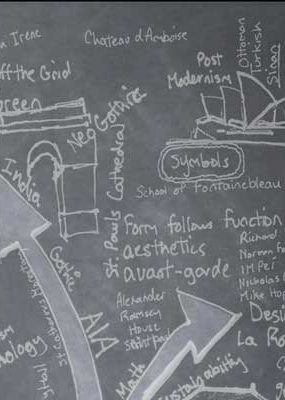 Irene
Chateau d'Amboise
Post
Modernism
Ottoman
Turkish
Sinan
ff the Grid
green
Neo Gothic
St. Pauls Cathedral
Symbols
School of Fontainebleau
India
form follows function
aesthetics
avant-garde
Richard
Norman Fo
IM Pei
Nicholas
Mike Hop
Gothic
Alexander
Ramsey
House
Saint paul
AIA
Desi
La Ro
nology
Math
Sustainability